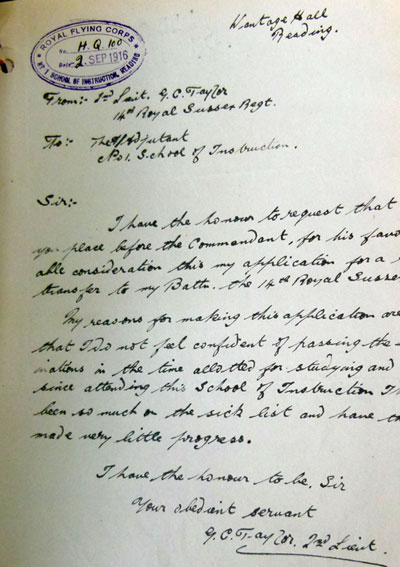 Wantage Hall
Reading.
ROYAL FLYING CORPS
No. H.Q. 100
DATE 2 SEP 1916
No 1 SCHOOL OF INSTRUCTION, READING
From:- 2nd Lieut. G. C. Taylor
14th Royal Sussex Regt.
To:- The Adjutant
No 1. School of Instruction.
Sir:-
I have the honour to request that
you place before the Commandant, for his favo
able consideration this my application for a
transfer to my Battn. the 14th Royal Sussex
My reasons for making this application are
that I do not feel confident of passing the
inations in the time allotted for studying and
since attending this School of Instruction I
been so much on the sick list and have
made very little progress.
I have the honour to be, Sir
Your obedient servant
G. C. Taylor. 2nd Lieut.